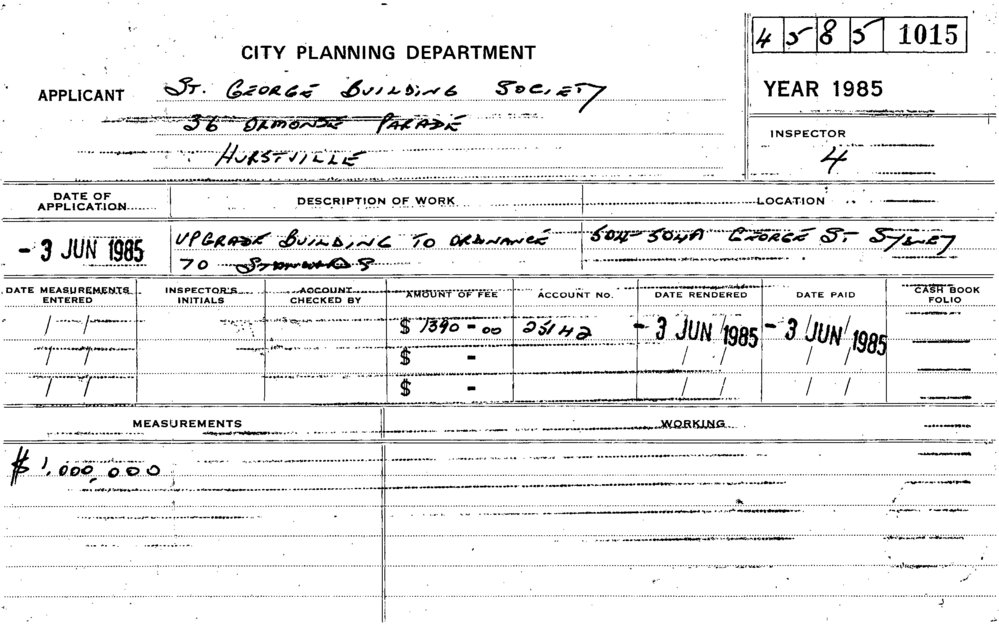 45 85 1015
CITY PLANNING DEPARTMENT
APPLICANT ST. GEORGE BUILDING SOCIETY
YEAR 1985
36 ORMONDE PARADE
HURSTVILLE
INSPECTOR
4
DATE OF APPLICATION DESCRIPTION OF WORK LOCATION
- 3 JUN 1985 UPGRADE BUILDING TO ORDNANCE 504-504A GEORGE ST SYDNEY
70 STANDARDS
DATE MEASUREMENTS ENTERED INSPECTOR'S INITIALS ACCOUNT CHECKED BY AMOUNT OF FEE ACCOUNT NO. DATE RENDERED DATE PAID CASH BOOK FOLIO
/ / $ 1390 - 00 25142 - 3 JUN 1985 - 3 JUN 1985
/ / $ - / / / /
/ / $ - / / / /
MEASUREMENTS WORKING
$ 1,000,000